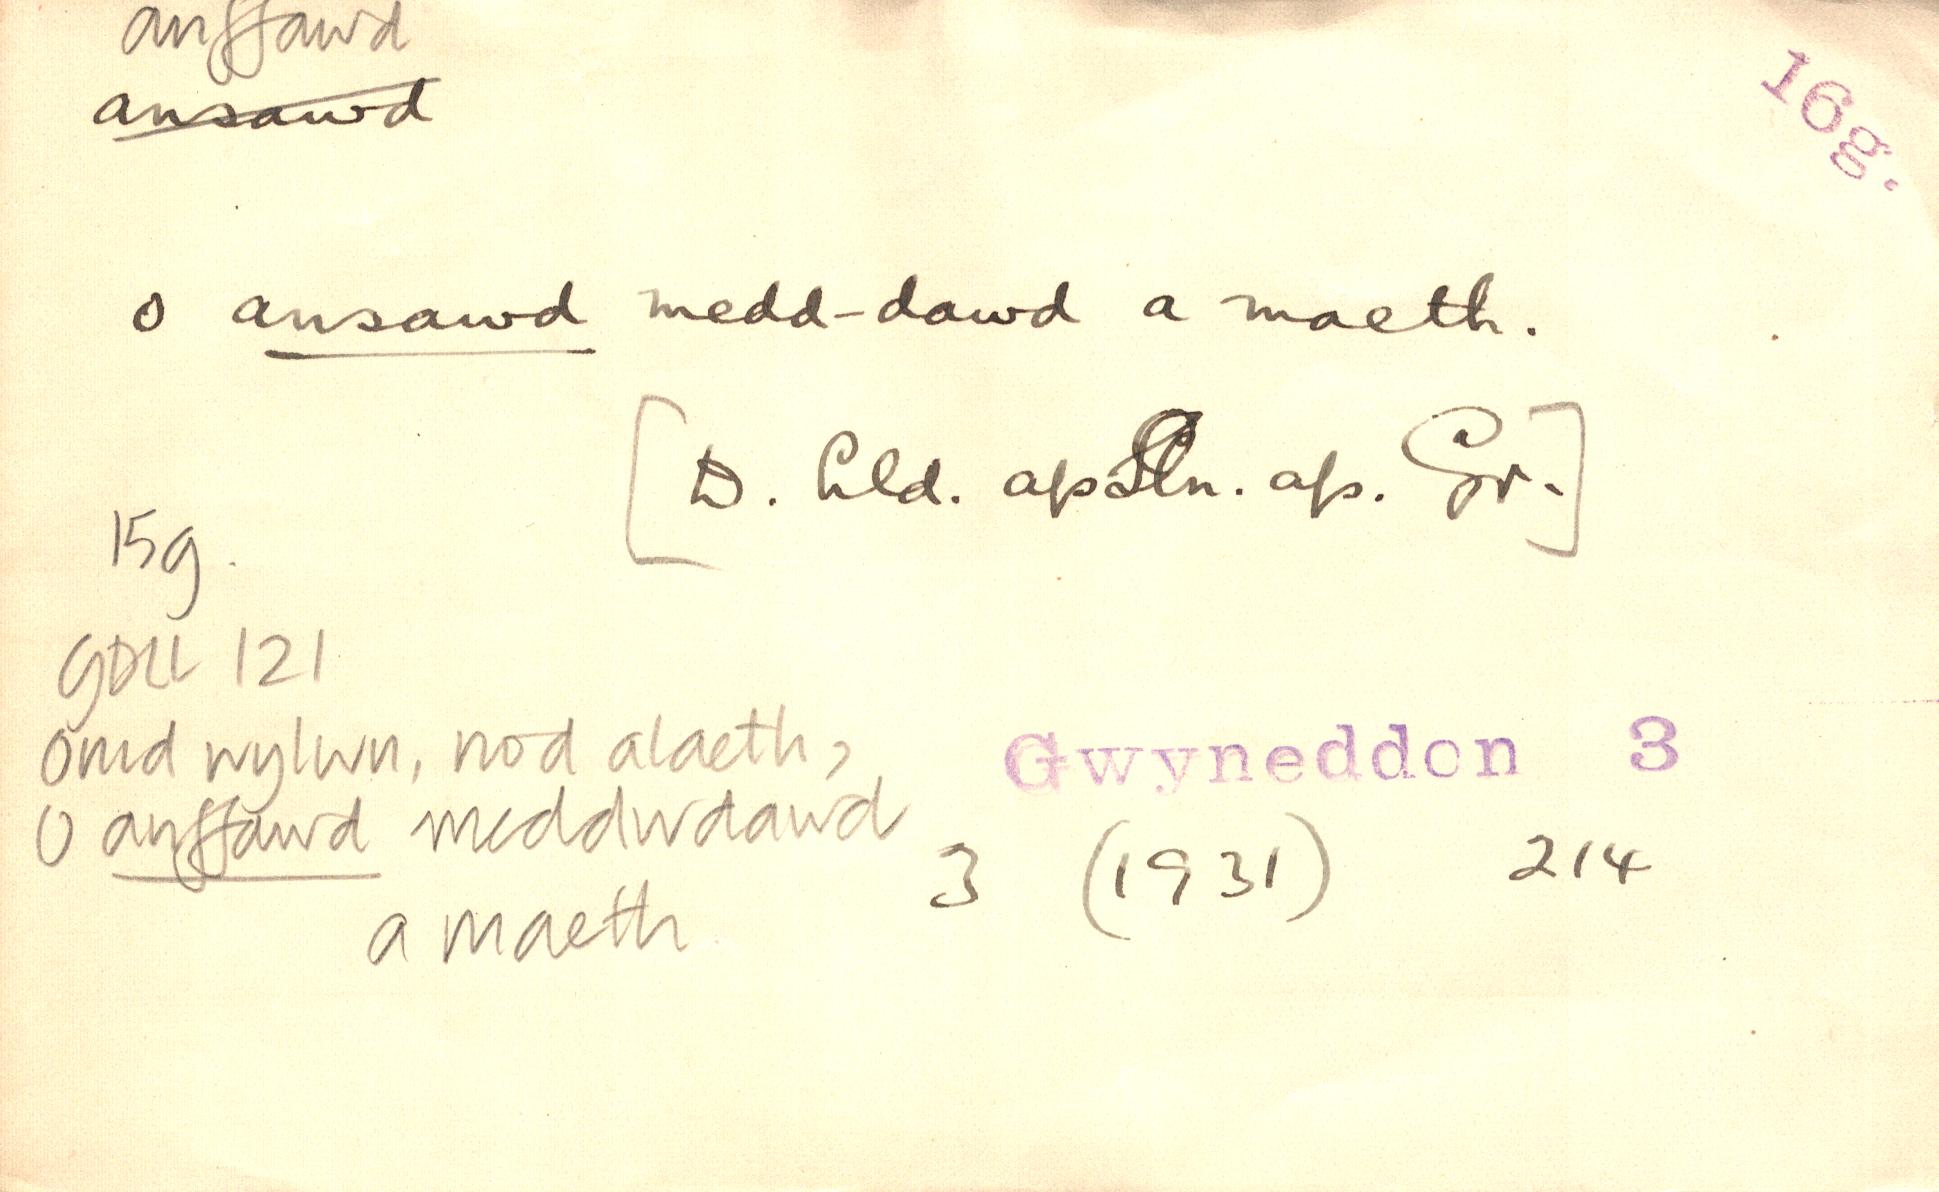 anffawd
ansawd
16g.
o ansawd medd-dawd a maeth.
[D. Lld. ap Lln. ap. Gr.]
15g.
GDLl 121
Ond wylwn, nod alaeth,
O anffawd meddwdawd
a maeth
Gwyneddon 3
3 (1931) 214